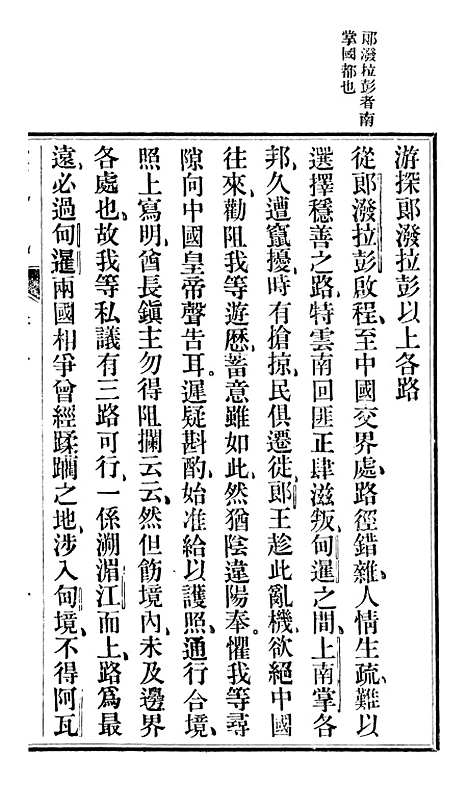 郞潑拉彭者南
掌國都也
游探郞潑拉彭以上各路
從郞潑拉彭啟程、至中國交界處、路徑錯雜、人情生疏、難以
選擇穩善之路、特雲南回匪正肆滋叛、甸暹之間、上南掌各
邦、久遭竄擾、時有搶掠、民俱遷徙、郞王趁此亂機、欲絕中國
往來、勸阻我等遊歷、蓄意雖如此、然猶陰違陽奉。懼我等尋
隙向中國皇帝聲吿耳。遲疑斟酌、始准給以護照、通行合境、
照上寫明、酋長鎭主勿得阻攔云云、然但飭境內、未及邊界
各處也、故我等私議有三路可行、一係溯湄江而上、路爲最
遠、必過甸暹兩國相爭曾經蹂躪之地、涉入甸境、不得阿瓦